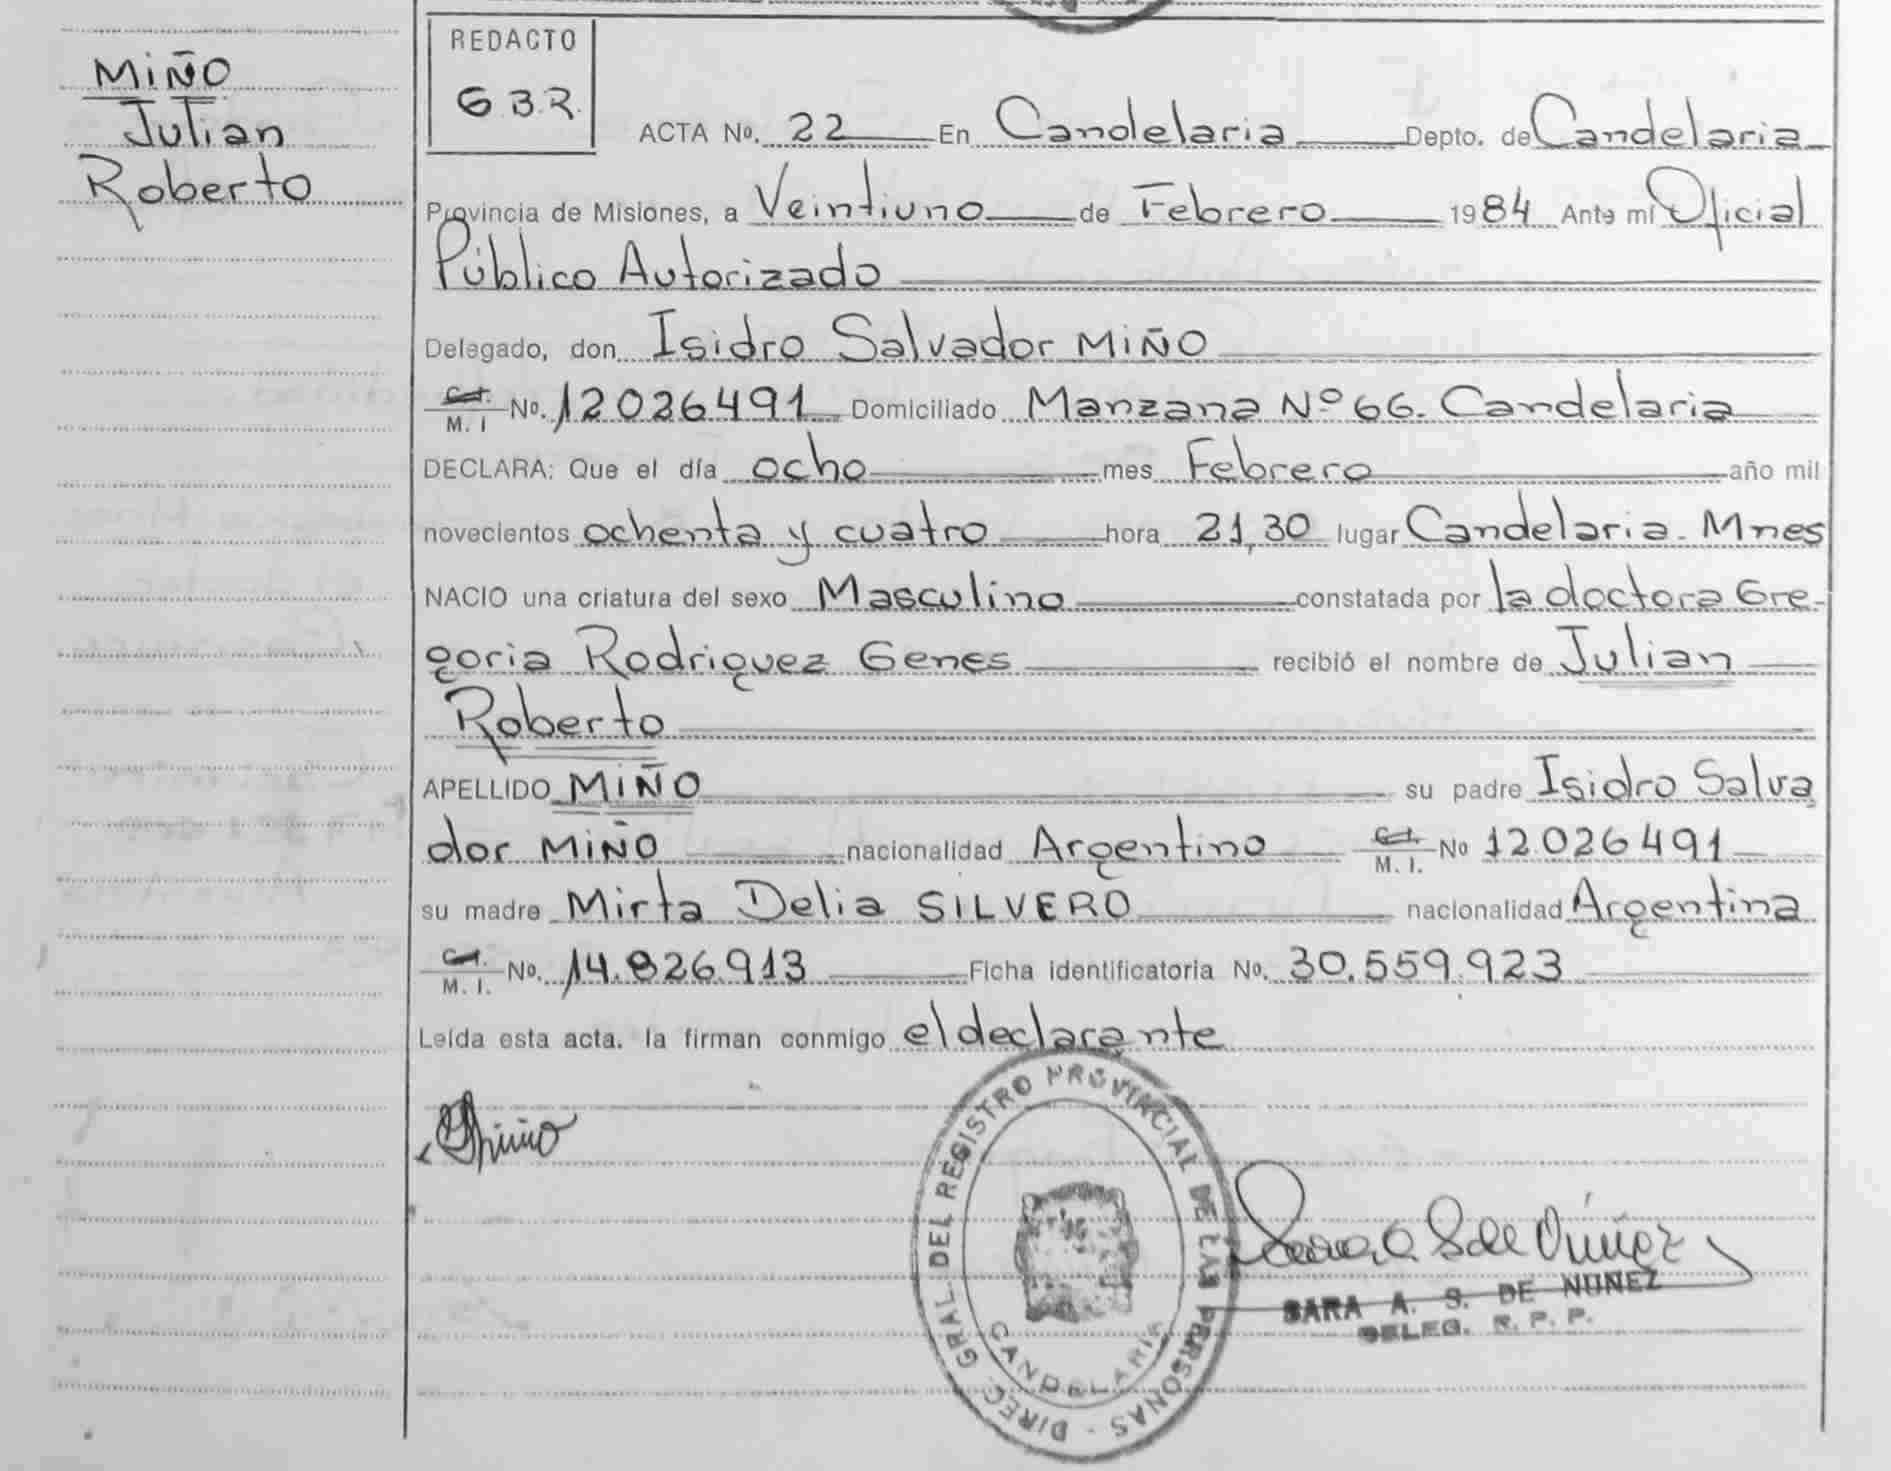 MIÑO
Julian
Roberto
REDACTO
G.B.R.
ACTA No. 22 En Candelaria Depto. de Candelaria
Provincia de Misiones, a Veintiuno de Febrero 1984 Ante mí Oficial
Público Autorizado
Delegado, don Isidro Salvador MIÑO
M. I No. 12026491 Domiciliado Manzana Nº 66. Candelaria
DECLARA: Que el día ocho mes Febrero año mil
novecientos ochenta y cuatro hora 21,30 lugar Candelaria. Mnes
NACIO una criatura del sexo Masculino constatada por la doctora Gre-
goria Rodriguez Genes recibió el nombre de Julian
Roberto
APELLIDO MIÑO su padre Isidro Salva
dor MIÑO nacionalidad Argentino M. I. No 12.026491
su madre Mirta Delia SILVERO nacionalidad Argentina
M. I. No. 14.826.913 Ficha identificatoria No. 30.559.923
Leída esta acta. la firman conmigo el declarante
DIREC. GRAL. DEL REGISTRO PROVINCIAL DE LAS PERSONAS -
CANDELARIA
SARA A. S. DE NUÑEZ
DELEG. R. P. P.